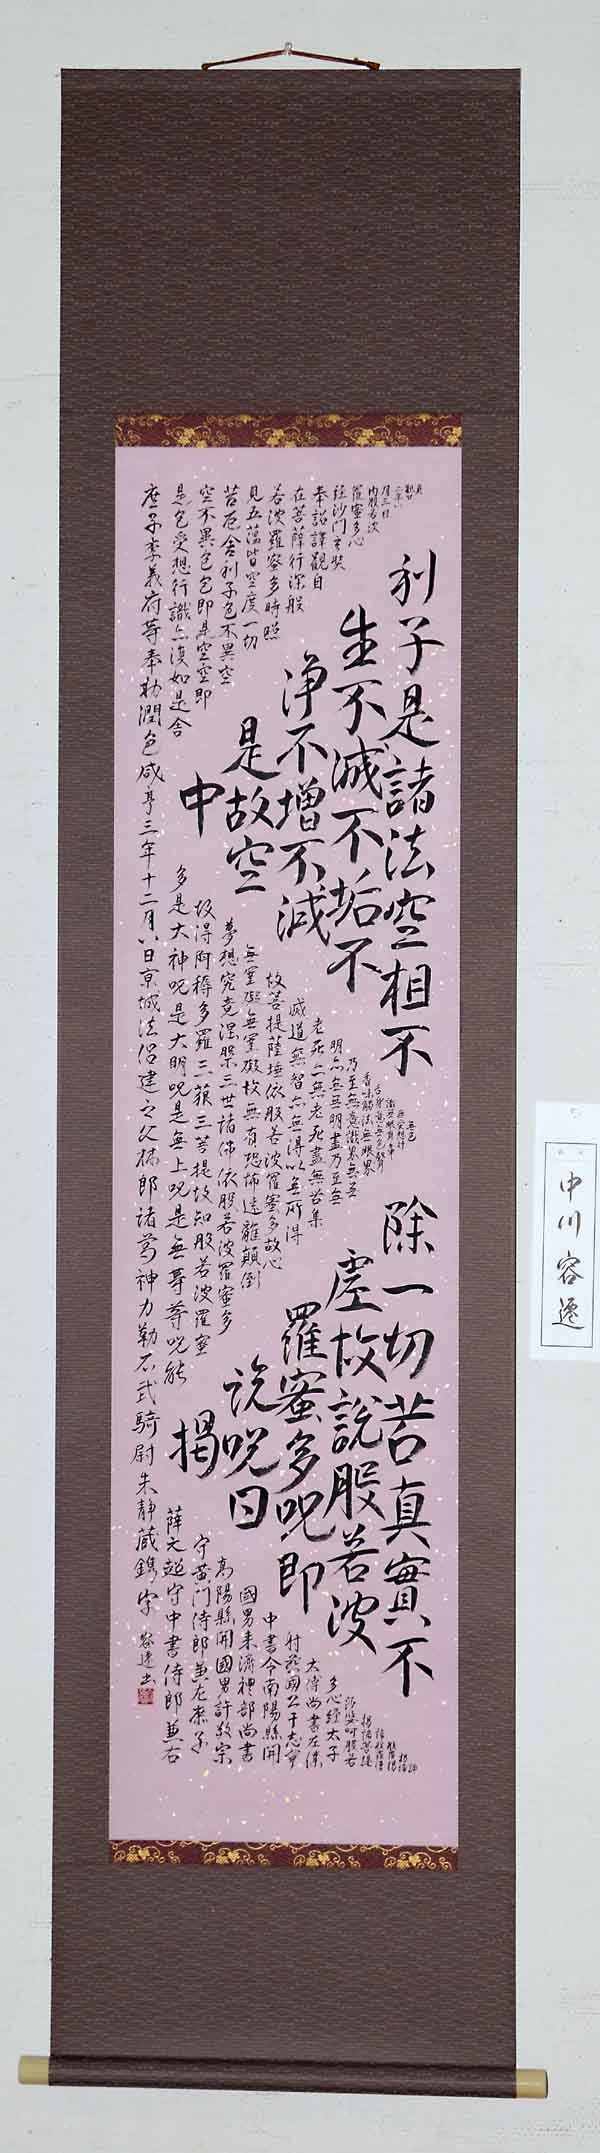 貞
觀廿
二年八
月三日
內般若波
羅蜜多心
經沙門玄奘
奉詔譯觀自
在菩薩行深般
若波羅蜜多時照
見五蘊皆空度一切
苦厄舍利子色不異空
空不異色色即是空空即
是色受想行識亦復如是舍
利子是諸法空相不
生不滅不垢不
淨不增不減
是故空
中
無色
無受想行
識無眼耳鼻
舌身意無色聲
香味觸法無眼界
乃至無意識界無無
明亦無無明盡乃至無
老死亦無老死盡無苦集
滅道無智亦無得以無所得
故菩提薩埵依般若波羅蜜多故心
無罣礙無罣礙故無有恐怖遠離顛倒
夢想究竟涅槃三世諸佛依般若波羅蜜多
故得阿耨多羅三藐三菩提故知般若波羅蜜
多是大神呪是大明呪是無上呪是無等等呪能
除一切苦真實不
虛故說般若波
羅蜜多呪即
說呪曰
揭
諦
揭諦
般羅揭
諦般羅僧
揭諦菩提
莎婆呵般若
多心經太子
太傅尚書左僕
射燕國公于志寧
中書令南陽縣開
國男來濟禮部尚書
高陽縣開國男許敬宗
守黃門侍郎兼左庶子
薛元超守中書侍郎兼右
庶子李義府等奉勅潤色咸亨三年十二月八日京城法侶建之文林郎諸葛神力勒石武騎尉朱靜藏鐫字 容遷書
中川容遷